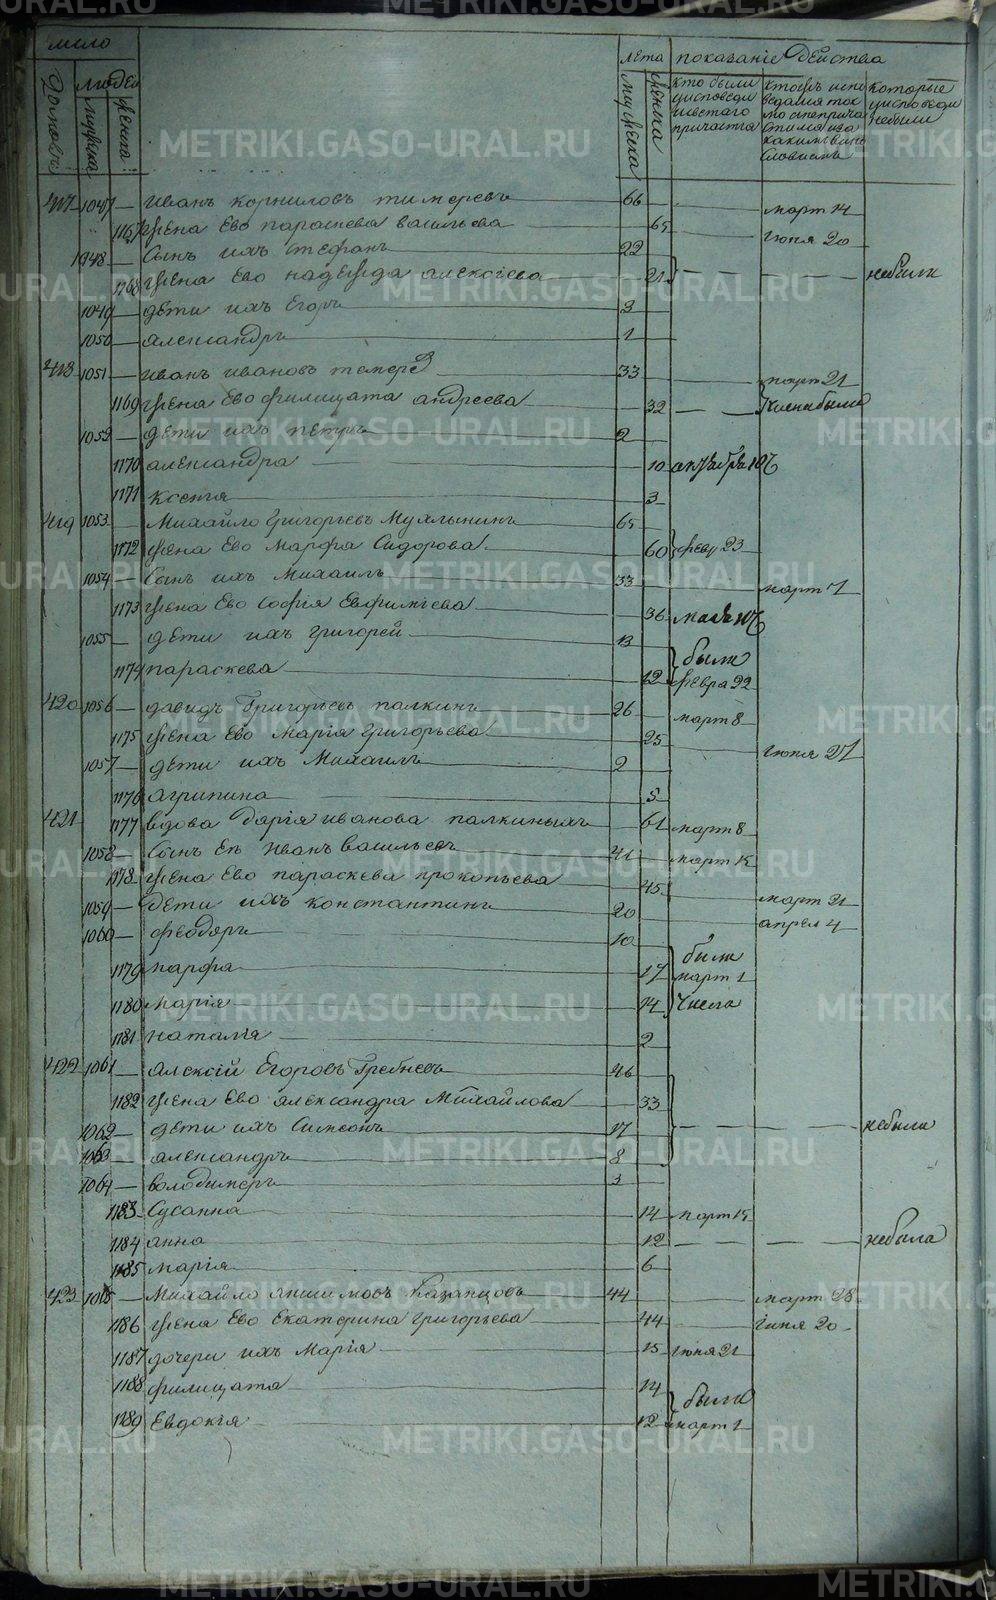 METRIKI.GASO-URAL.RU
число
лета показаніе действа
Домовъ
людей
мужска
женска
мужеска
женска
кто были у исповеди и светаго причастія
которые у исповеди небыли
417 1047 — иванъ корниловъ 66 март 14
1167 жена Ево параскева васильева 65 іюня 20
1048 — Сынъ ихъ стефанъ 22
1168 жена Ево надежда алексіева 21 — — небыли
1049 — дети ихъ Егоръ 3
1050 — александръ 1
418 1051 — иванъ ивановъ 33 март 21
1169 жена Ево филицата андреева 32 —
1052 — дети ихъ петръ 2
1170 александра — 10
1171 ксенія 3
419 1053 — Михайло григорьевъ 65
1172 жена Ево Марфа Сидорова 60 февр 23
1054 — Сынъ ихъ Михаилъ 33 март 7
1173 жена Ево Софія Евфиміева 36
1055 — дети ихъ григорей 13 были
1174 параскева 12 февра 22
420 1056 — давидъ Григорьевъ палкинъ 26 март 8
1175 жена Ево Марія григорьева 25 іюня 27
1057 — дети ихъ Михаилъ 2
1176 агрипина 5
421 1177 вдова дарія иванова палкиныхъ 61 март 8
1058 — Сынъ Ея иванъ васильевъ 41 март 15
1178 жена Ево параскева прокопьева 45 март 21
1059 — дети ихъ константинъ 20 апрел 4
1060 — феодоръ 10 были
1179 марфа 17 март 1
1180 марія 14 Числа
1181 наталія 2
422 1061 — алексій Егоровъ Гребневъ 46
1182 жена Ево александра Михайлова 33
1062 — дети ихъ Симеонъ 17 — — небыли
1063 — александръ 8
1064 — володимеръ 3
1183 Сусанна 14 март 15
1184 анна 12 — — небыла
1185 марія 6
423 1065 — Михайло Казанцовъ 44 март 28
1186 жена Ево Екатерина григорьева 44 іюня 20
1187 дочери ихъ Марія 15 іюня 21
1188 филицата 14 были
1189 Евдокія 12 март 1